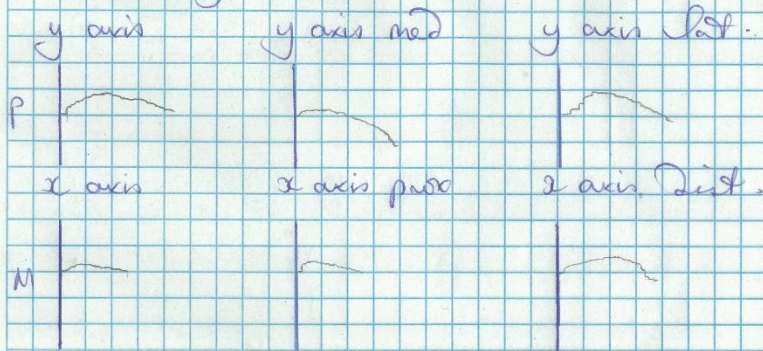 y axis y axis med y axis lat.
P
x axis x axis prox x axis Dist.
M